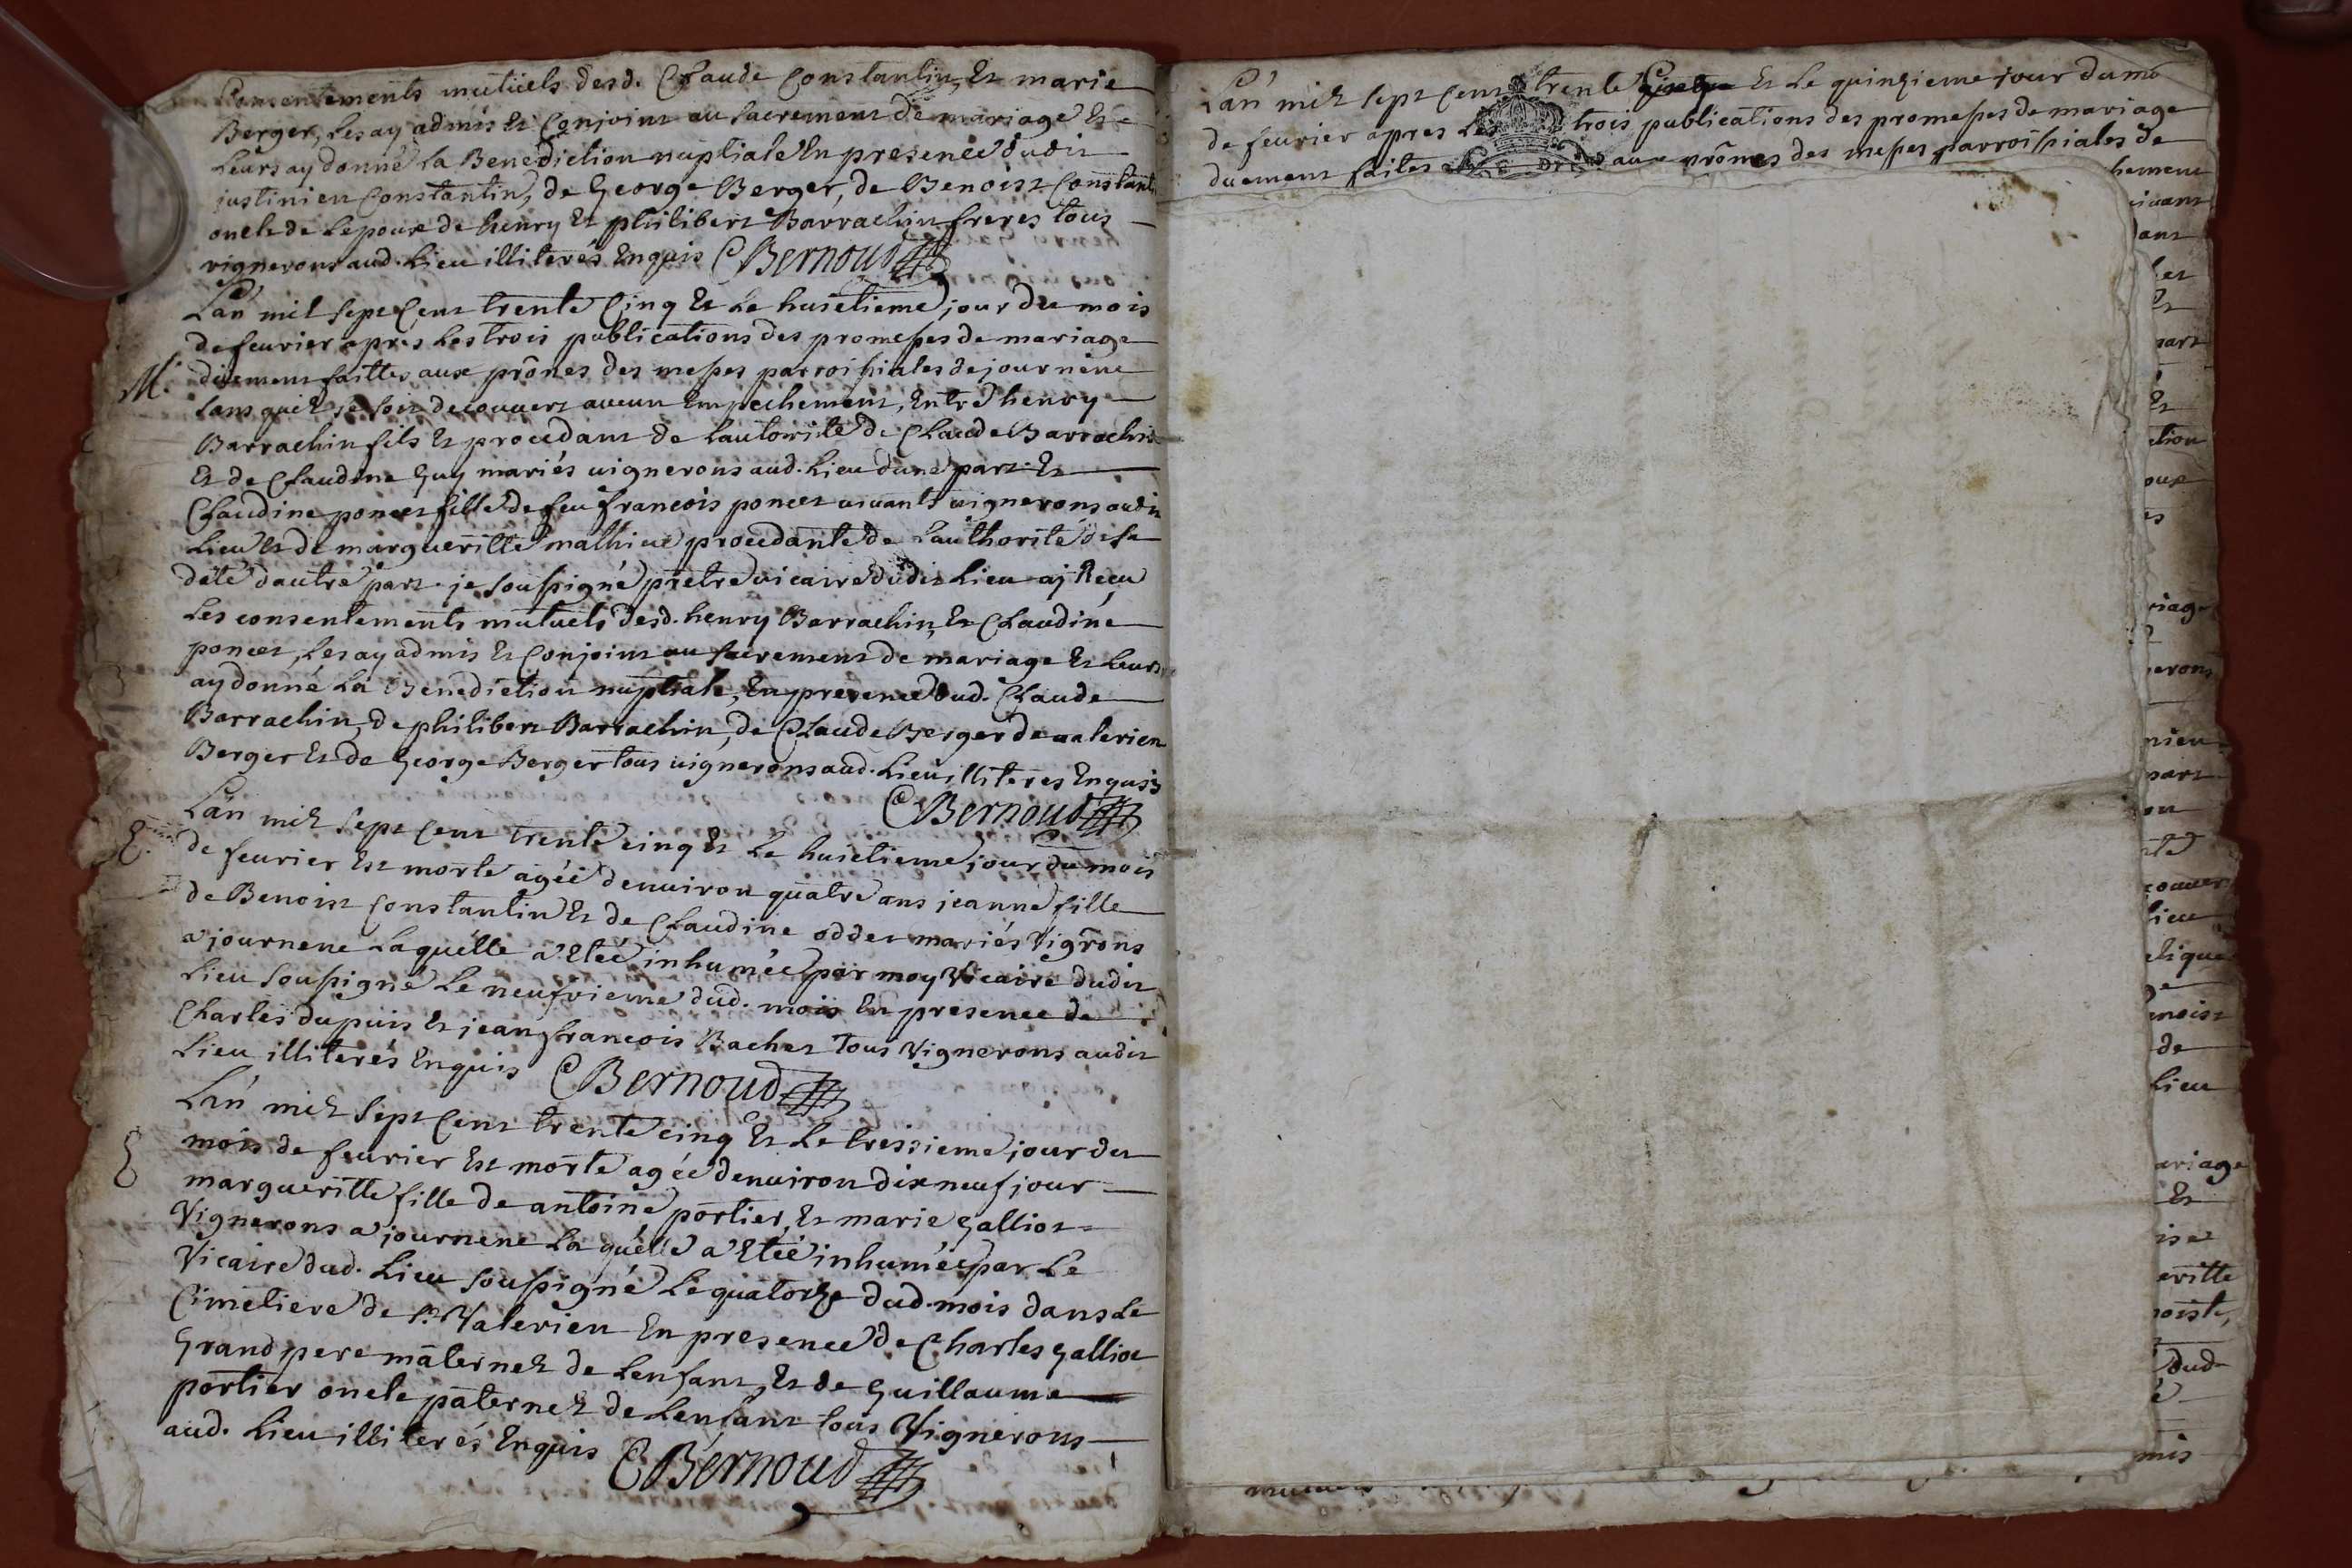 Consentements mutuels desd. Claude Constantin, Et marie
Berger, Les ay admis Et Conjoint au Sacrement de mariage Et
Leurs ay donné La Benediction nuptiale En presence dudit
justinien Constantin, de George Berger, de Benoist Constant
oncle de Lepoux de henry Et philibert Barrachin freres tous
vignerons aud. Lieu illiterés Enquis CBernoud
L'an mil sept Cent trente Cinq Et Le huictieme jour du mois
de feurier apres Les trois publications des promesses de mariage
M. duement faittes aux prônes des messes parroissiales de journene
sans quil se soit decouvert aucun Empechement, Entre henry
Barrachin fils Et procedant de Lautorité de Claude Barrachin
Et de Claudine Guy mariés uignerons aud. Lieu dune part Et
Claudine poncet fille de feu francois poncet uiuant uignerons audit
Lieu Et de margueritte mathieu procedante de Lauthorité de sa
dite dautre part. je soussigné pretre uicaire dudit Lieu aj Reçu
Les consentements mutuels desd. henry Barrachin, Et Claudine
poncet, Les ay admis Et Conjoint au sacrement de mariage Et Leurs
ay donné La Benediction nuptiale, En presence dud. Claude
Barrachin, de philibert Barrachin, de Claude Berger de ualerien
Berger Et de George Berger tous uignerons aud. Lieu illiteres Enquis
CBernoud
L'an mil sept Cent trente cinq Et Le huictieme jour du mois
E. de feurier Est morte agée denuiron quatre ans jeanne fille
de Benoist Constantin Et de Claudine oddet mariés Vigrons
a journene Laquelle a Etée inhumée par moy Vicaire dudit
Lieu soussigné Le neufvieme dud. mois En presence de
Charles dupuis Et jean francois Bachet Tous Vignerons audit
Lieu illiterés Enquis CBernoud
L'an mil sept Cent trente cinq Et Le treisieme jour du
E mois de feurier Est morte agée denuiron dix neuf jour
margueritte fille de antoine portier, Et marie Galliot
Vignerons a journene La quelle a Etée inhumée par Le
Vicaire dud. Lieu soussigné Le quatorze dud. mois dans Le
Cimetiere de St Valerien En presence de Charles Galliot
Grand pere maternel de Lenfant, Et de Guillaume
portier oncle paternel de Lenfant tous Vignerons
aud. Lieu illiterés Enquis CBernoud
L'an mil sept Cent trente Cinq Et Le quinzieme jour du mo
de feurier apres Les trois publications des promesses de mariage
duement faites aux prônes des messes parroissiales de
hement
iuant
ant
Et
part
Et
ction
oux
es
riage
nerons
nieu
part
ou
lieu
noist
de
Lieu
ariage
Et
eritte
dud
mis